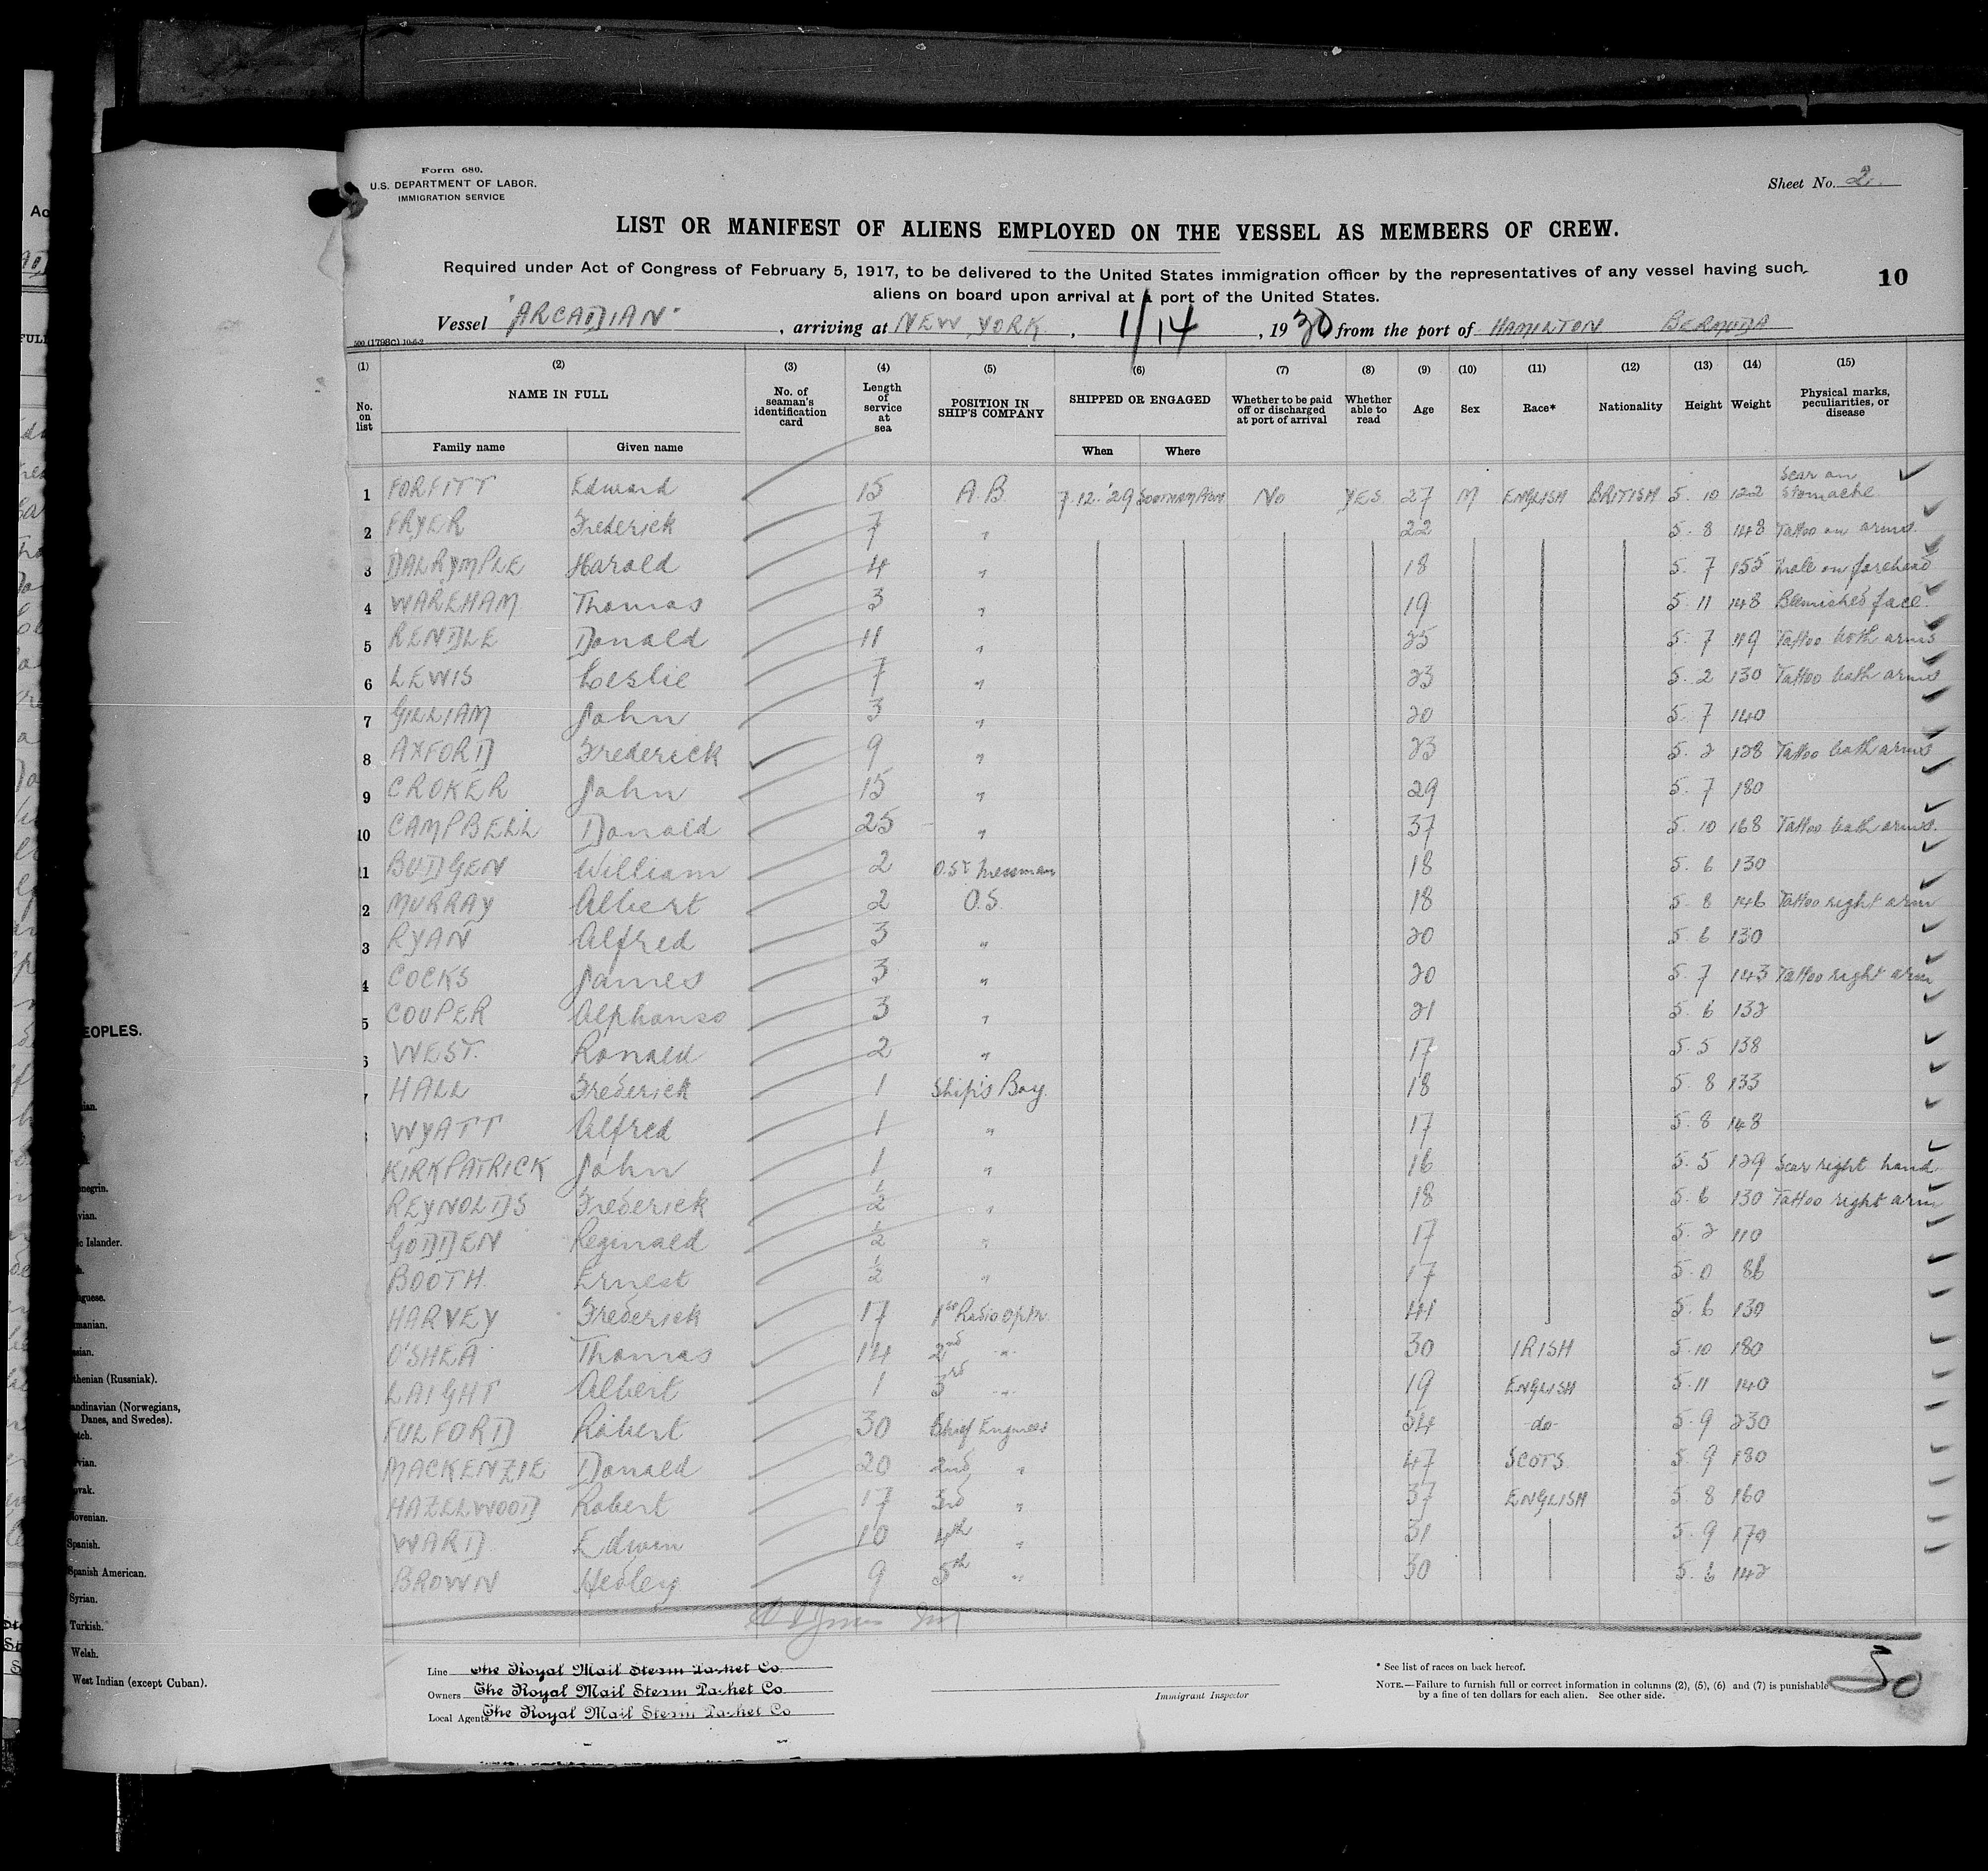 Form 680.
U.S. DEPARTMENT OF LABOR.
IMMIGRATION SERVICE
Sheet No. 2.
LIST OR MANIFEST OF ALIENS EMPLOYED ON THE VESSEL AS MEMBERS OF CREW.
Required under Act of Congress of February 5, 1917, to be delivered to the United States immigration officer by the representatives of any vessel having such
aliens on board upon arrival at a port of the United States.
10
Vessel "ARCADIAN", arriving at NEW YORK, 1/14, 1930 from the port of HAMILTON BERMUDA
500 (1798C) 10-6-2
(1) (2) (3) (4) (5) (6) (7) (8) (9) (10) (11) (12) (13) (14) (15)
No. on list NAME IN FULL Family name Given name No. of seaman's identification card Length of service at sea POSITION IN SHIP'S COMPANY SHIPPED OR ENGAGED When Where Whether to be paid off or discharged at port of arrival Whether able to read Age Sex Race* Nationality Height Weight Physical marks, peculiarities, or disease
1 FORFITT Edward 15 A.B. 7.12.'29 No YES 27 M ENGLISH BRITISH 5. 10 122 Scar on Stomache
2 FRYER Frederick 7 " 22 5. 8 148 Tattoo on arms.
3 DALRYMPLE Harold 4 " 18 5. 7 155 Mole on forehead
4 WAREHAM Thomas 3 " 19 5. 11 148 Blemished face.
5 RENDLE Donald 11 " 25 5. 7 149 Tattoo both arms
6 LEWIS Leslie 7 " 23 5. 2 130 Tattoo both arms
7 GILLIAM John 3 " 20 5. 7 140
8 AXFORD Frederick 9 " 23 5. 2 128 Tattoo both arms
9 CROKER John 15 " 29 5. 7 180
10 CAMPBELL Donald 25 " 37 5. 10 168 Tattoo both arms.
11 BUDGEN William 2 O.S. Messman 18 5. 6 130
2 MURRAY Albert 2 O.S. 18 5. 8 146 Tattoo right arm
3 RYAN Alfred 3 " 20 5. 6 130
4 COCKS James 3 " 20 5. 7 143 Tattoo right arm
5 COUPER Alphonso 3 " 21 5. 6 132
WEST. Ronald 2 " 17 5. 5 138
HALL Frederick 1 Ship's Boy. 18 5. 8 133
WYATT Alfred 1 " 17 5. 8 148
KIRKPATRICK John 1 " 16 5. 5 129 Scar right hand
REYNOLDS Frederick 1/2 " 18 5. 6 130 Tattoo right arm
GODDEN Reginald 1/2 " 17 5. 2 110
BOOTH. Ernest 1/2 " 17 5. 0 86
HARVEY Frederick 17 1st Radio Optr. 41 5. 6 130
O'SHEA Thomas 14 2nd " 30 IRISH 5. 10 180
LAIGHT Albert 1 3rd " 19 ENGLISH 5. 11 140
FULFORD Robert 30 Chief Engineer 54 -do- 5. 9 230
MACKENZIE Donald 20 2nd " 47 SCOTS 5. 9 180
HAZELWOOD Robert 17 3rd " 37 ENGLISH 5. 8 160
WARD. Edwin 10 4th " 31 5. 9 170
BROWN Hedley 9 5th " 30 5. 6 142
Line The Royal Mail Steam Packet Co.
Owners The Royal Mail Steam Packet Co
Local Agents The Royal Mail Steam Packet Co
Immigrant Inspector
* See list of races on back hereof.
NOTE.—Failure to furnish full or correct information in columns (2), (5), (6) and (7) is punishable
by a fine of ten dollars for each alien. See other side.
EOPLES.
Islander.
thenian (Russniak).
andinavian (Norwegians,
Danes, and Swedes).
Spanish.
Spanish American.
Syrian.
Turkish.
Welsh.
West Indian (except Cuban).